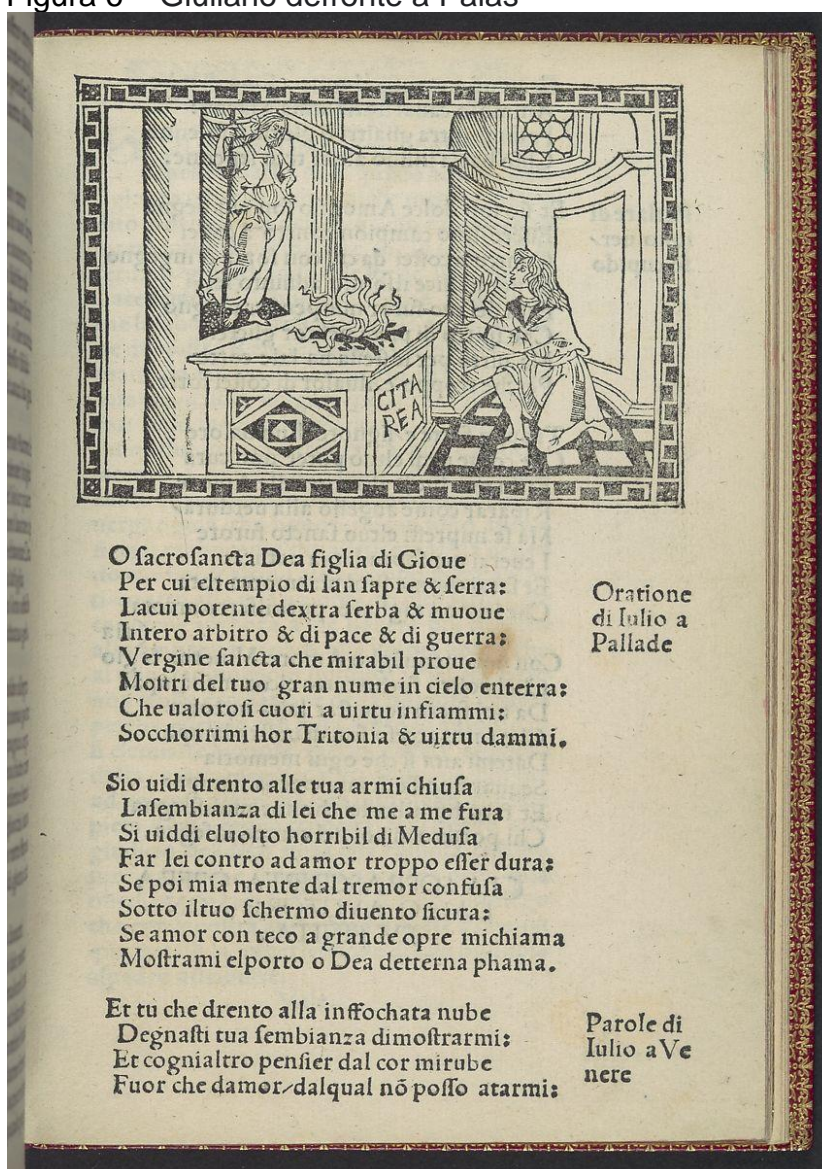 Figura 6 – Giuliano defronte a Palas
CITA
REA
O ſacroſancta Dea figlia di Gioue
Per cui eltempio di Ian ſapre & ſerra:
Lacui potente dextra ſerba & muoue
Intero arbitro & di pace & di guerra:
Vergine ſancta che mirabil proue
Moſtri del tuo gran nume in cielo enterra:
Che ualoroſi cuori a uirtu infiammi:
Socchorrimi hor Tritonia & uirtu dammi.
Oratione
di Iulio a
Pallade
Sio uidi drento alle tua armi chiuſa
Laſembianza di lei che me a me fura
Si uiddi eluolto horribil di Meduſa
Far lei contro ad amor troppo eſſer dura:
Se poi mia mente dal tremor confuſa
Sotto iltuo ſchermo diuento ſicura:
Se amor con teco a grande opre michiama
Moſtrami elporto o Dea detterna phama.
Et tu che drento alla inffochata nube
Degnaſti tua ſembianza dimoſtrarmi:
Et cognialtro penſier dal cor mirube
Fuor che damor/dalqual nõ poſſo atarmi:
Parole di
Iulio aVe
nere